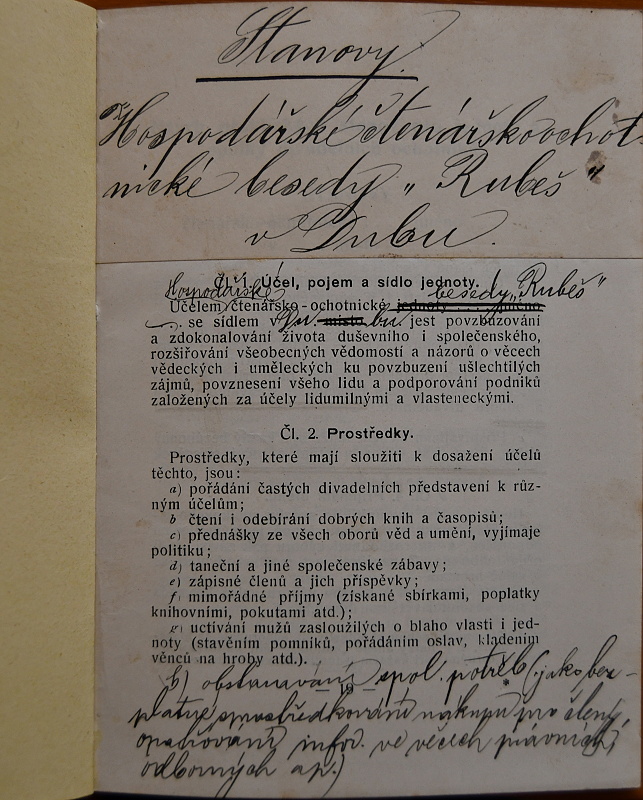 Stanovy
Hospodářské čtenářskoochot-
nické besedy „Rubeš“
v Dubu.
Čl. 1. Účel, pojem a sídlo jednoty.
Hospodářské besedy „Rubeš“
Účelem čtenářsko-ochotnické jednoty
se sídlem v Du místo bu. jest povzbuzování
a zdokonalování života duševního i společenského,
rozšiřování všeobecných vědomostí a názorů o věcech
vědeckých i uměleckých ku povzbuzení ušlechtilých
zájmů, povznesení všeho lidu a podporování podniků
založených za účely lidumilnými a vlasteneckými.
Čl. 2. Prostředky.
Prostředky, které mají sloužiti k dosažení účelů
těchto, jsou:
a) pořádání častých divadelních představení k růz-
ným účelům;
b čtení i odebírání dobrých knih a časopisů;
c) přednášky ze všech oborů věd a umění, vyjímaje
politiku;
d) taneční a jiné společenské zábavy;
e) zápisné členů a jich příspěvky;
f) mimořádné příjmy (získané sbírkami, poplatky
knihovními, pokutami atd.);
g) uctívání mužů zasloužilých o blaho vlasti i jed-
noty (stavěním pomníků, pořádáním oslav, kladením
věnců na hroby atd.).
h) obstarávání spol. potřeb (jako bez-
platné sprostředkování nákupu pro členy,
opatřování infor. ve věcech právních,
odborných ap.)